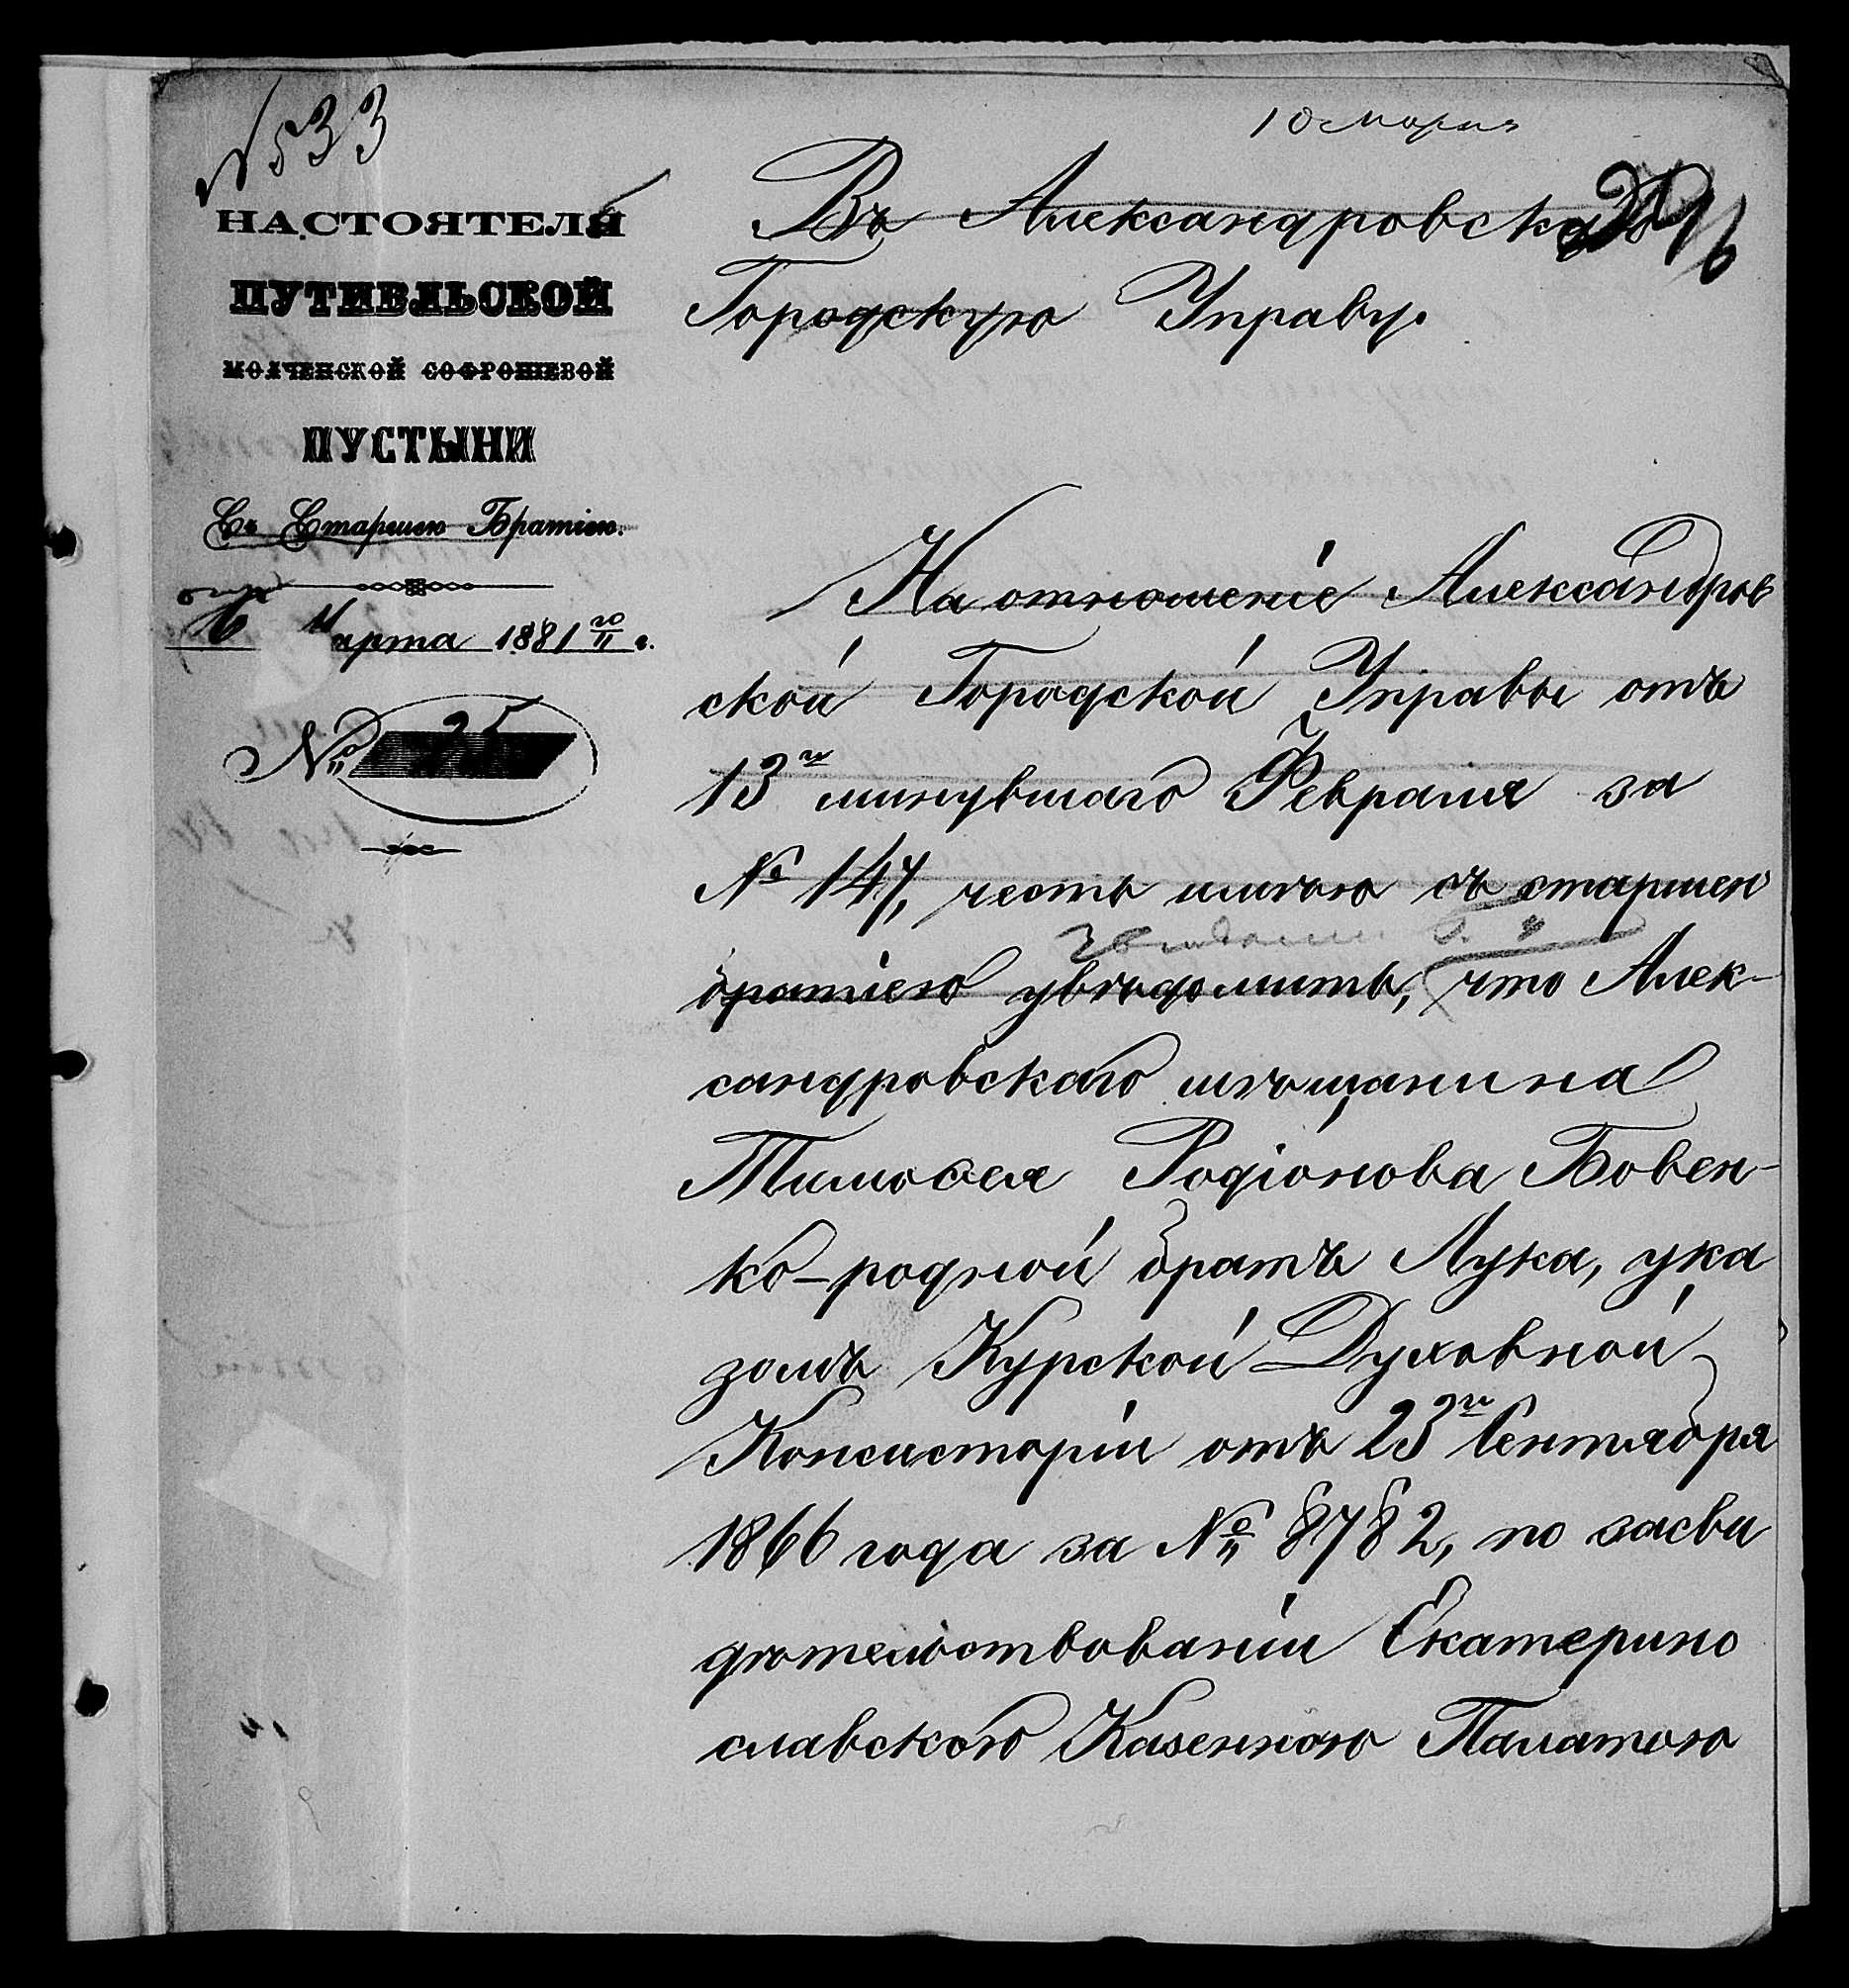 № 533
10 марта
НАСТОЯТЕЛЯ
ПУТИВЛЬСКОЙ
МОЛЧЕНСКОЙ СОФРОНІЕВОЙ
ПУСТЫНИ
Съ Старшею Братіею.
6 Марта 1881 го г.
№ 25
Въ Александровскую
Городскую Управу.
На отношеніе Александров
ской Городской Управы отъ
13го минувшаго Февраля за
№ 147, честь имѣю съ старшею
братіею увѣдомить, что Алек-
сандровскаго мѣщанина
Тимоѳея Родіонова Бовен-
ко-родной братъ Лука, ука
зомъ Курской Духовной
Консисторіи отъ 23го Сентября
1866 года за № 8782, по засви
дѣтельствованіи Екатерино
славскою Казенною Палатою